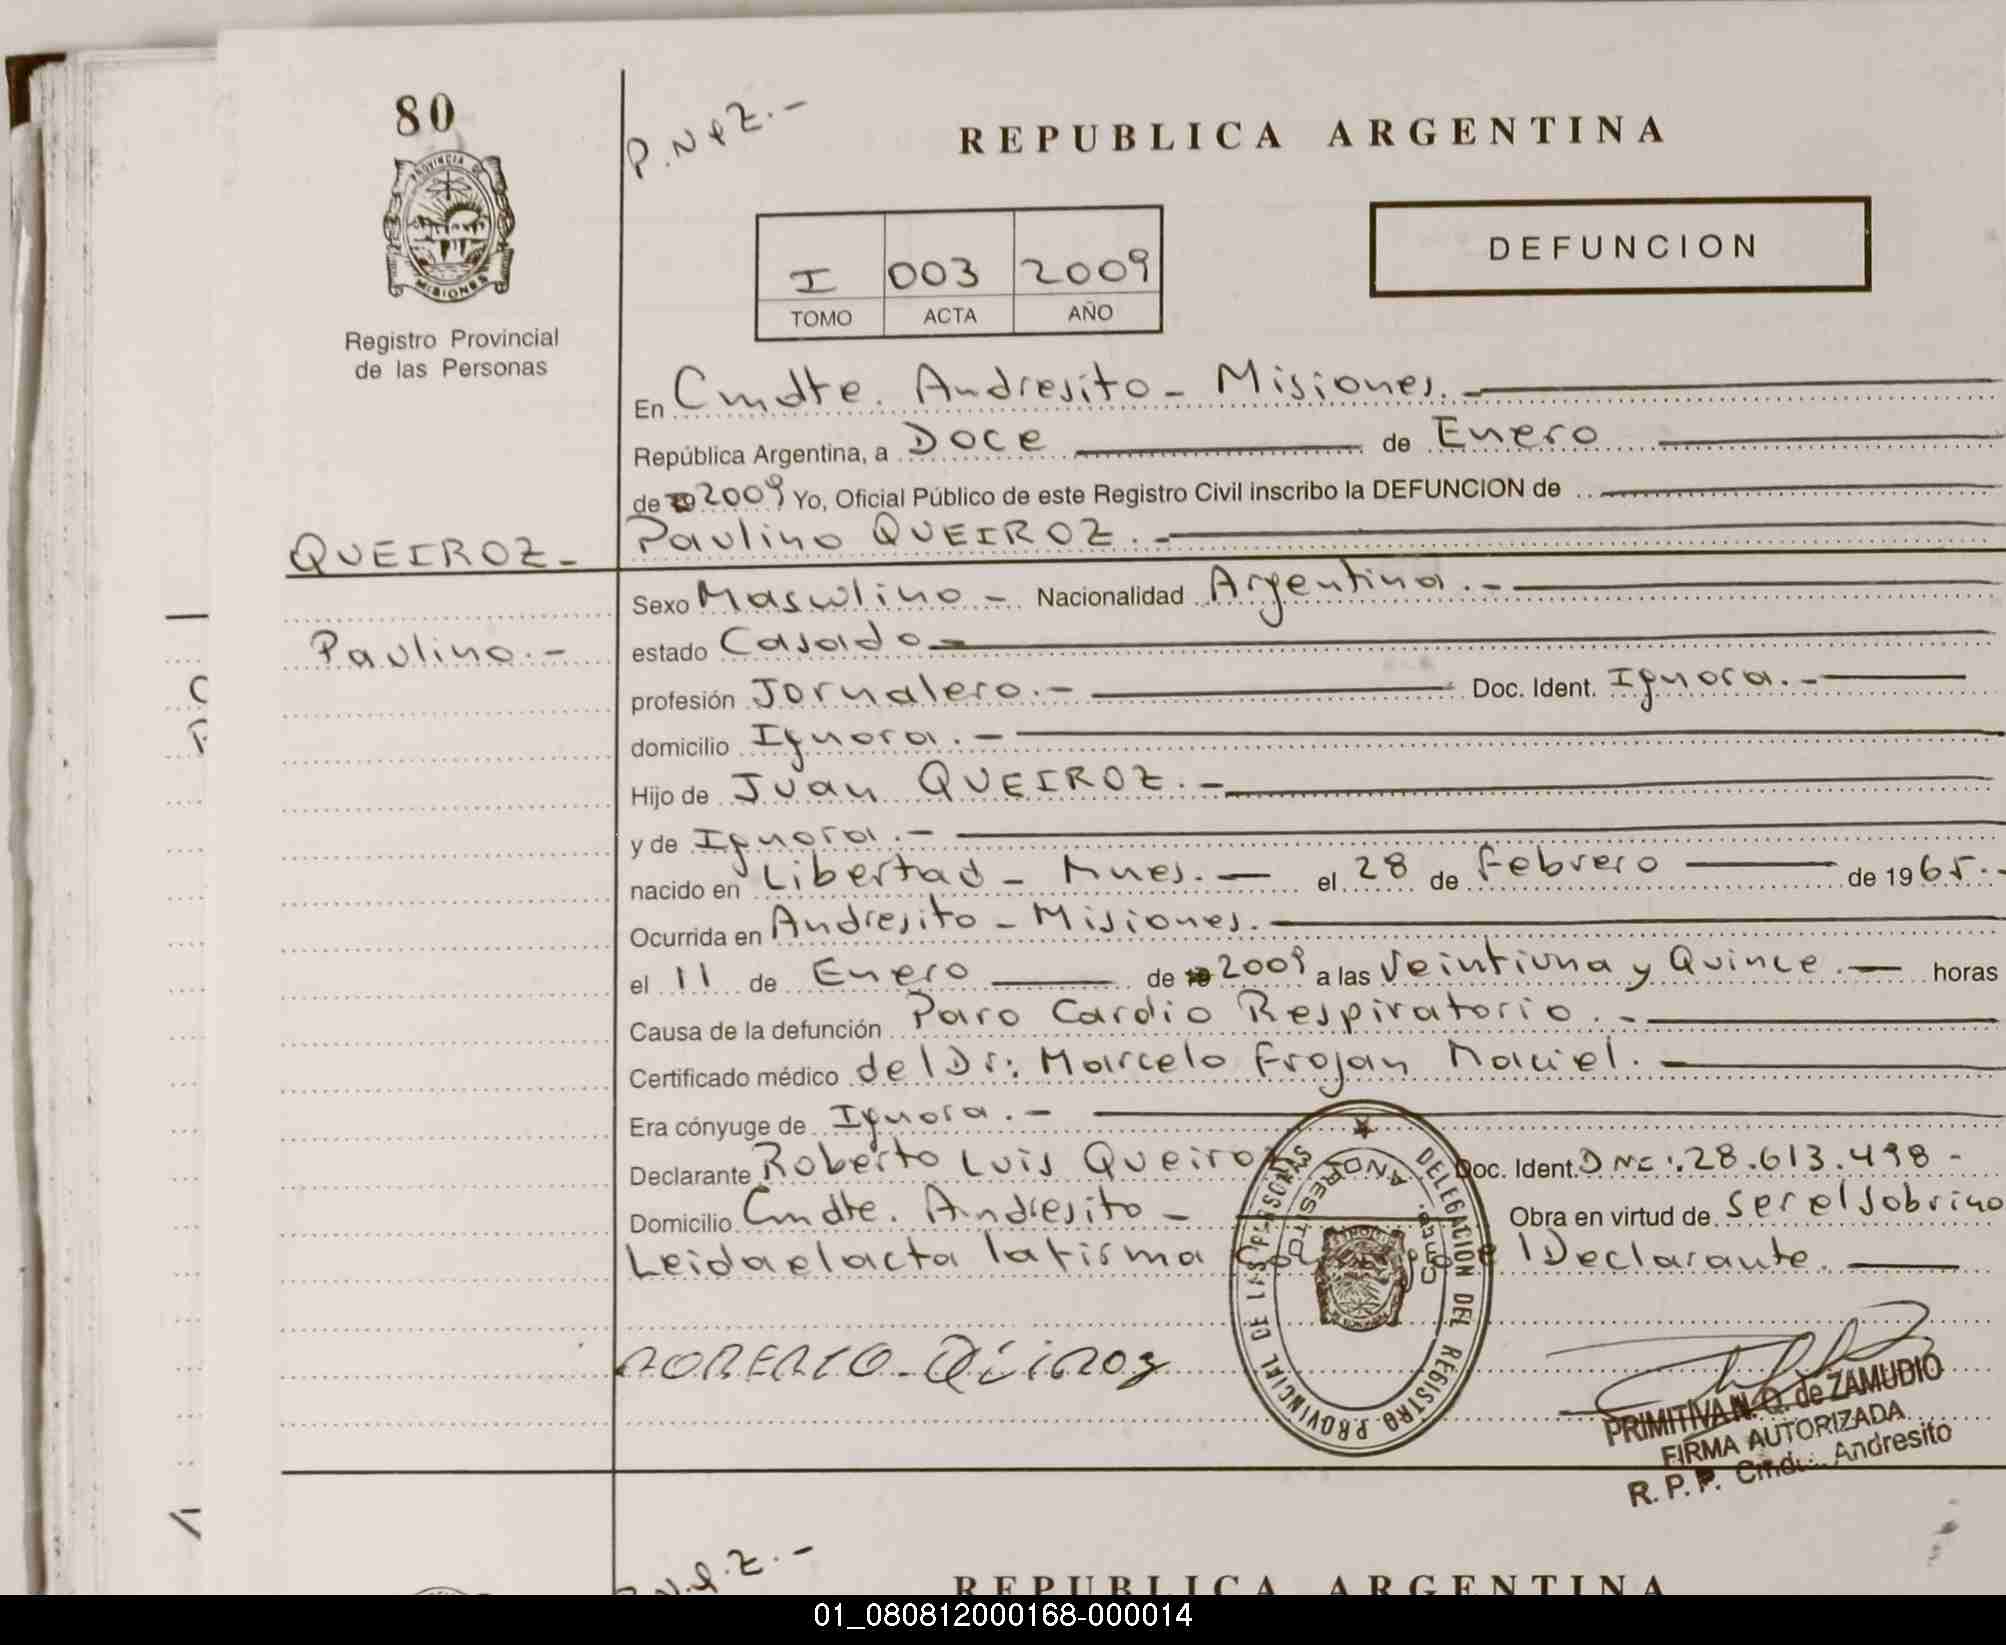 80
P.N.Q.Z.-
REPUBLICA ARGENTINA
PROVINCIA DE
MISIONES
DEFUNCION
I 003 2009
TOMO ACTA AÑO
Registro Provincial
de las Personas
En Cmdte. Andresito - Misiones.-
República Argentina, a Doce de Enero
de 2009 Yo, Oficial Público de este Registro Civil inscribo la DEFUNCION de
QUEIROZ- Paulino QUEIROZ.-
Sexo Masculino - Nacionalidad Argentina.-
Paulino.- estado Casado-
profesión Jornalero.- Doc. Ident. Ignora.-
domicilio Ignora.-
Hijo de Juan QUEIROZ.-
y de Ignora.-
nacido en Libertad - Mnes.- el 28 de Febrero de 1965.-
Ocurrida en Andresito - Misiones.
el 11 de Enero de 2009 a las Veintiuna y Quince.- horas
Causa de la defunción Paro Cardio Respiratorio.-
Certificado médico del Dr: Marcelo Frojan Maciel.-
Era cónyuge de Ignora.-
Declarante Roberto Luis Queiroz Doc. Ident. DNI: 28.613.498-
Domicilio Cmdte. Andresito - Obra en virtud de ser el Sobrino
Leida el acta la firma conmigo el Declarante.
DELEGACION DEL REGISTRO PROVINCIAL DE LAS PERSONAS
Cmdte. ANDRESITO
ROBERTO-QUiROz
PRIMITIVA N. Q. de ZAMUDIO
FIRMA AUTORIZADA
R. P. P. Cmdte. Andresito
REPUBLICA ARGENTINA
01_080812000168-000014